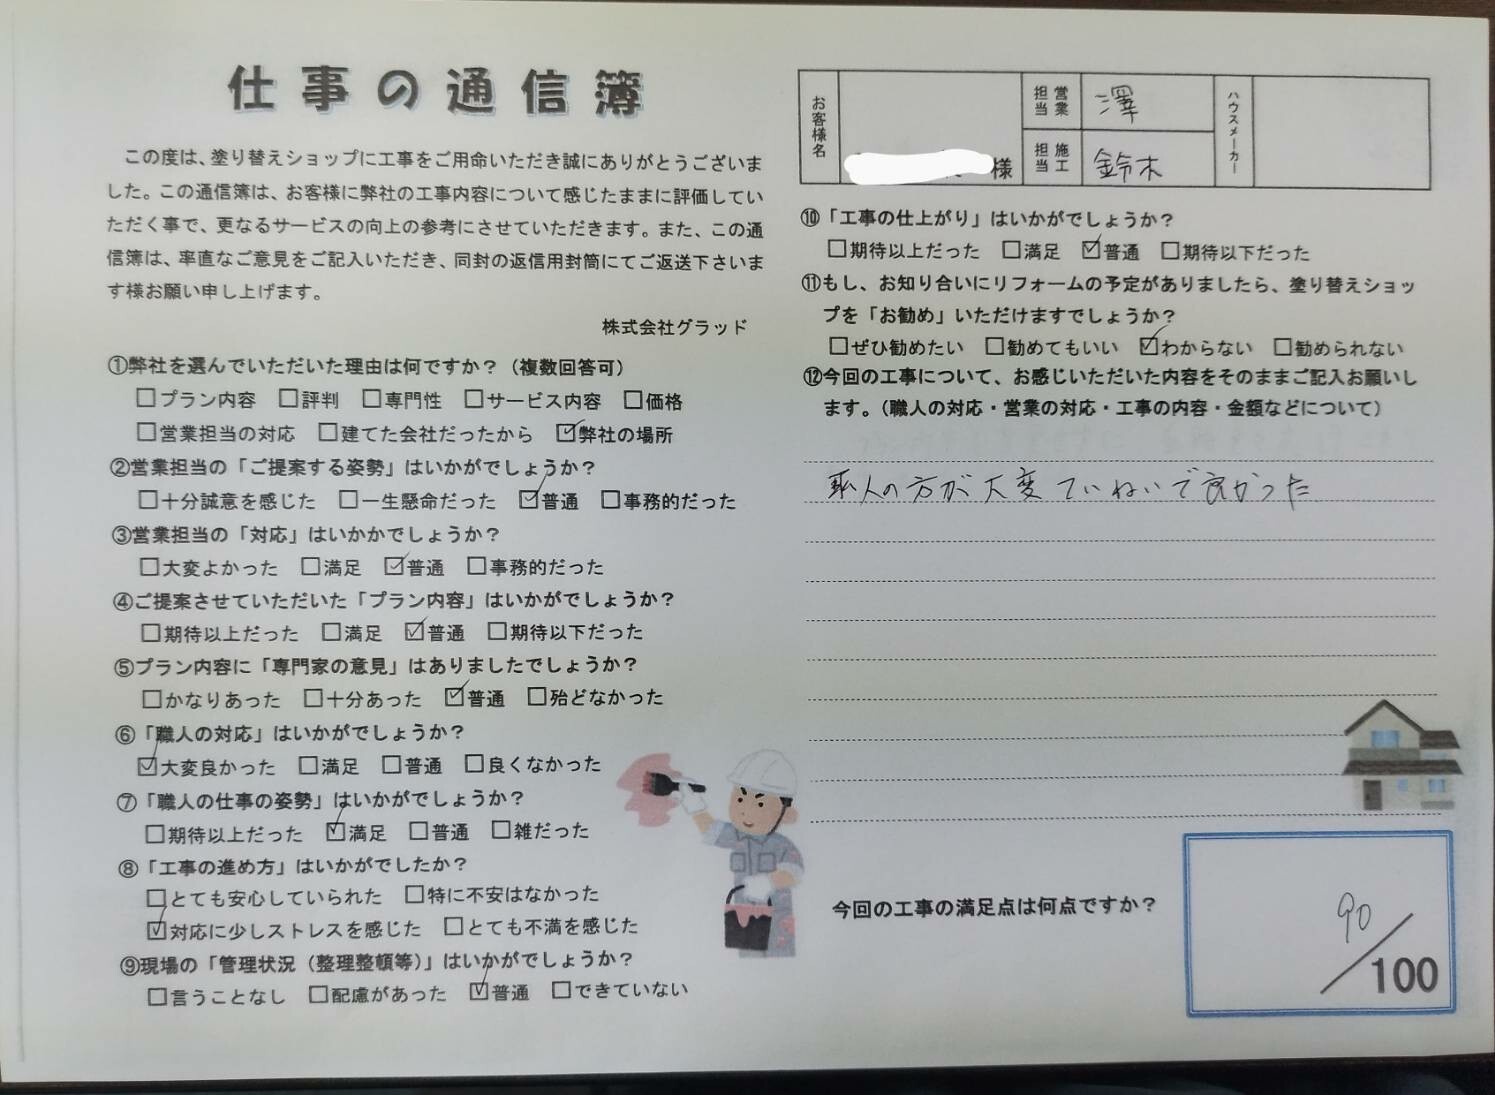 仕事の通信簿
この度は、塗り替えショップに工事をご用命いただき誠にありがとうございま
した。この通信簿は、お客様に弊社の工事内容について感じたままに評価してい
ただく事で、更なるサービスの向上の参考にさせていただきます。また、この通
信簿は、率直なご意見をご記入いただき、同封の返信用封筒にてご返送下さいま
す様お願い申し上げます。
株式会社グラッド
①弊社を選んでいただいた理由は何ですか？（複数回答可）
□プラン内容 □評判 □専門性 □サービス内容 □価格
□営業担当の対応 □建てた会社だったから ☑弊社の場所
②営業担当の「ご提案する姿勢」はいかがでしょうか？
□十分誠意を感じた □一生懸命だった ☑普通 □事務的だった
③営業担当の「対応」はいかかでしょうか？
□大変よかった □満足 ☑普通 □事務的だった
④ご提案させていただいた「プラン内容」はいかがでしょうか？
□期待以上だった □満足 ☑普通 □期待以下だった
⑤プラン内容に「専門家の意見」はありましたでしょうか？
□かなりあった □十分あった ☑普通 □殆どなかった
⑥「職人の対応」はいかがでしょうか？
☑大変良かった □満足 □普通 □良くなかった
⑦「職人の仕事の姿勢」はいかがでしょうか？
□期待以上だった ☑満足 □普通 □雑だった
⑧「工事の進め方」はいかがでしたか？
□とても安心していられた □特に不安はなかった
☑対応に少しストレスを感じた □とても不満を感じた
⑨現場の「管理状況（整理整頓等）」はいかがでしょうか？
□言うことなし □配慮があった ☑普通 □できていない
お客様名
様
営業担当
澤
施工担当
鈴木
ハウスメーカー
⑩「工事の仕上がり」はいかがでしょうか？
□期待以上だった □満足 ☑普通 □期待以下だった
⑪もし、お知り合いにリフォームの予定がありましたら、塗り替えショッ
プを「お勧め」いただけますでしょうか？
□ぜひ勧めたい □勧めてもいい ☑わからない □勧められない
⑫今回の工事について、お感じいただいた内容をそのままご記入お願いし
ます。（職人の対応・営業の対応・工事の内容・金額などについて）
職人の方が大変ていねいで良かった
今回の工事の満足点は何点ですか？
90/100